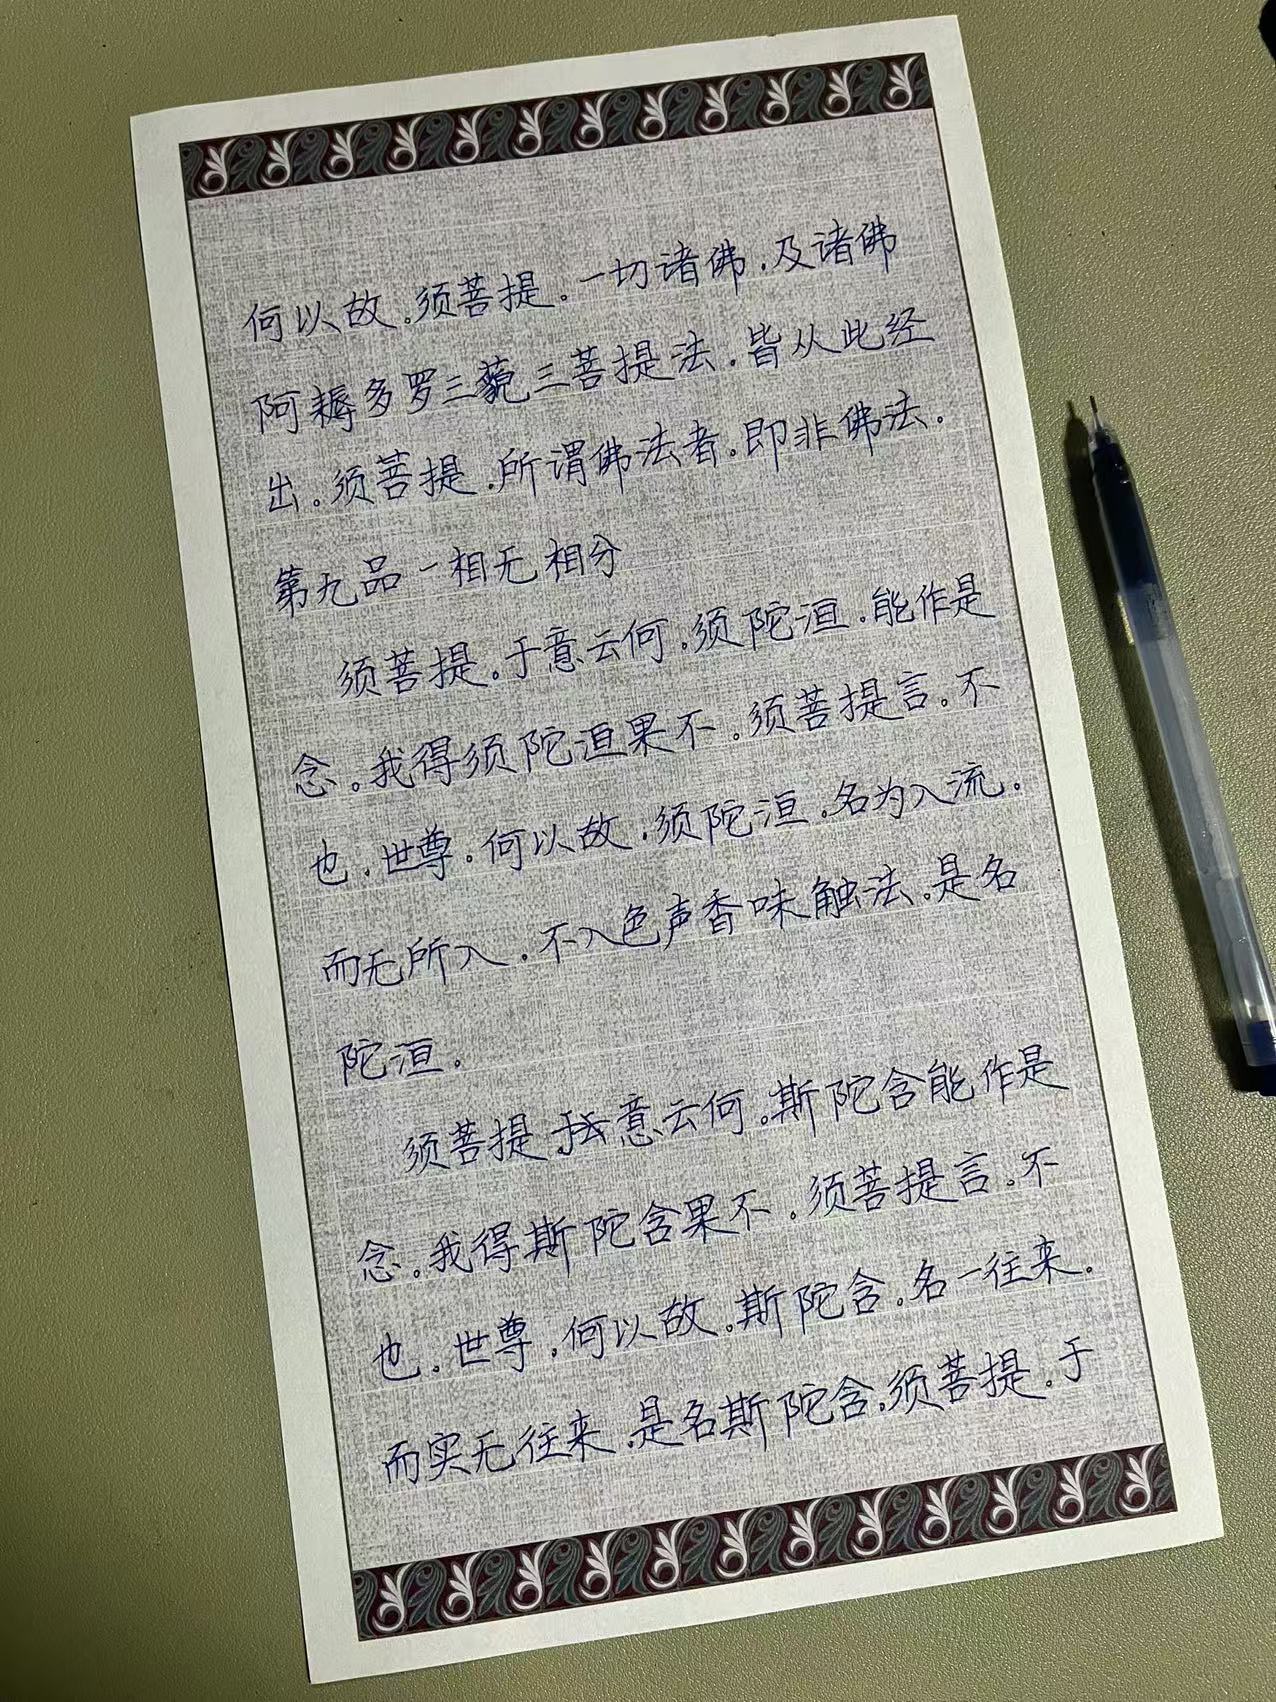 何以故。须菩提。一切诸佛.及诸佛
阿耨多罗三藐三菩提法.皆从此经
出。须菩提.所谓佛法者。即非佛法.
第九品一相无相分
须菩提。于意云何。须陀洹.能作是
念。我得须陀洹果不。须菩提言。不
也.世尊.何以故.须陀洹.名为入流.
而无所入.不入色声香味触法.是名
陀洹.
须菩提 于意云何。斯陀含能作是
念。我得斯陀含果不.须菩提言.不
也.世尊.何以故.斯陀含.名一往来.
而实无往来.是名斯陀含.须菩提.于